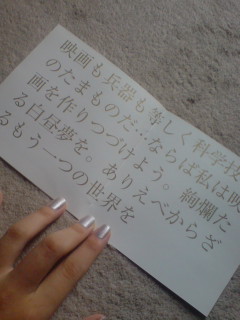 映画も兵器も等しく科学技
のたまものだ…ならば私は映
画を作りつづけよう。絢爛た
る白昼夢を。ありえべからざ
るもう一つの世界を